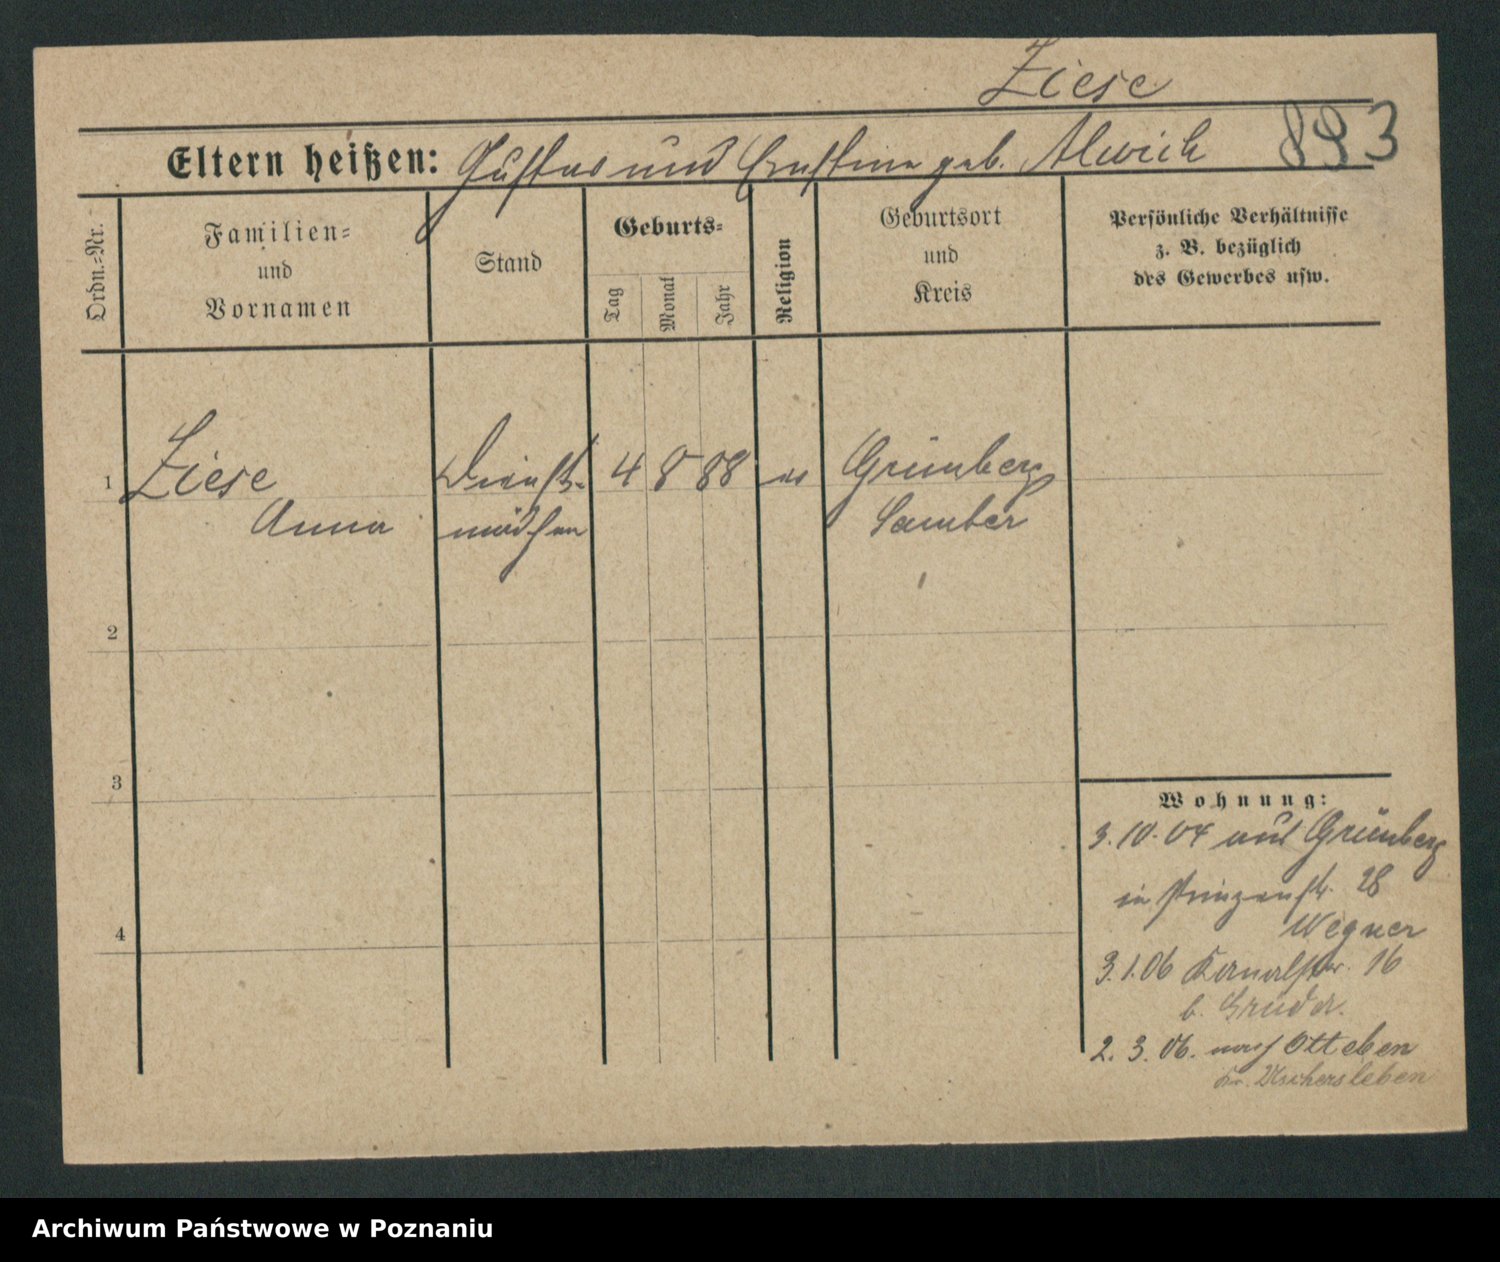 Ziese
Eltern heißen: Gustav und Ernstine geb. Alwich 893
Ordn.-Nr.
Familien-
und
Vornamen
Stand
Geburts-
Tag
Monat
Jahr
Religion
Geburtsort
und
Kreis
Persönliche Verhältnisse
z. B. bezüglich
des Gewerbes usw.
1 Ziese Dienst- 4 8 88 ev Grünberg
Anna mädchen Samter
2
3
4
Wohnung:
3.10.04 aus Grünberg
in Prinzenstr. 28
Wegner
3.1.06 Kanalstr. 16
b.
2. 3. 06. nach Ottleben
Kr. Aschersleben
Archiwum Państwowe w Poznaniu